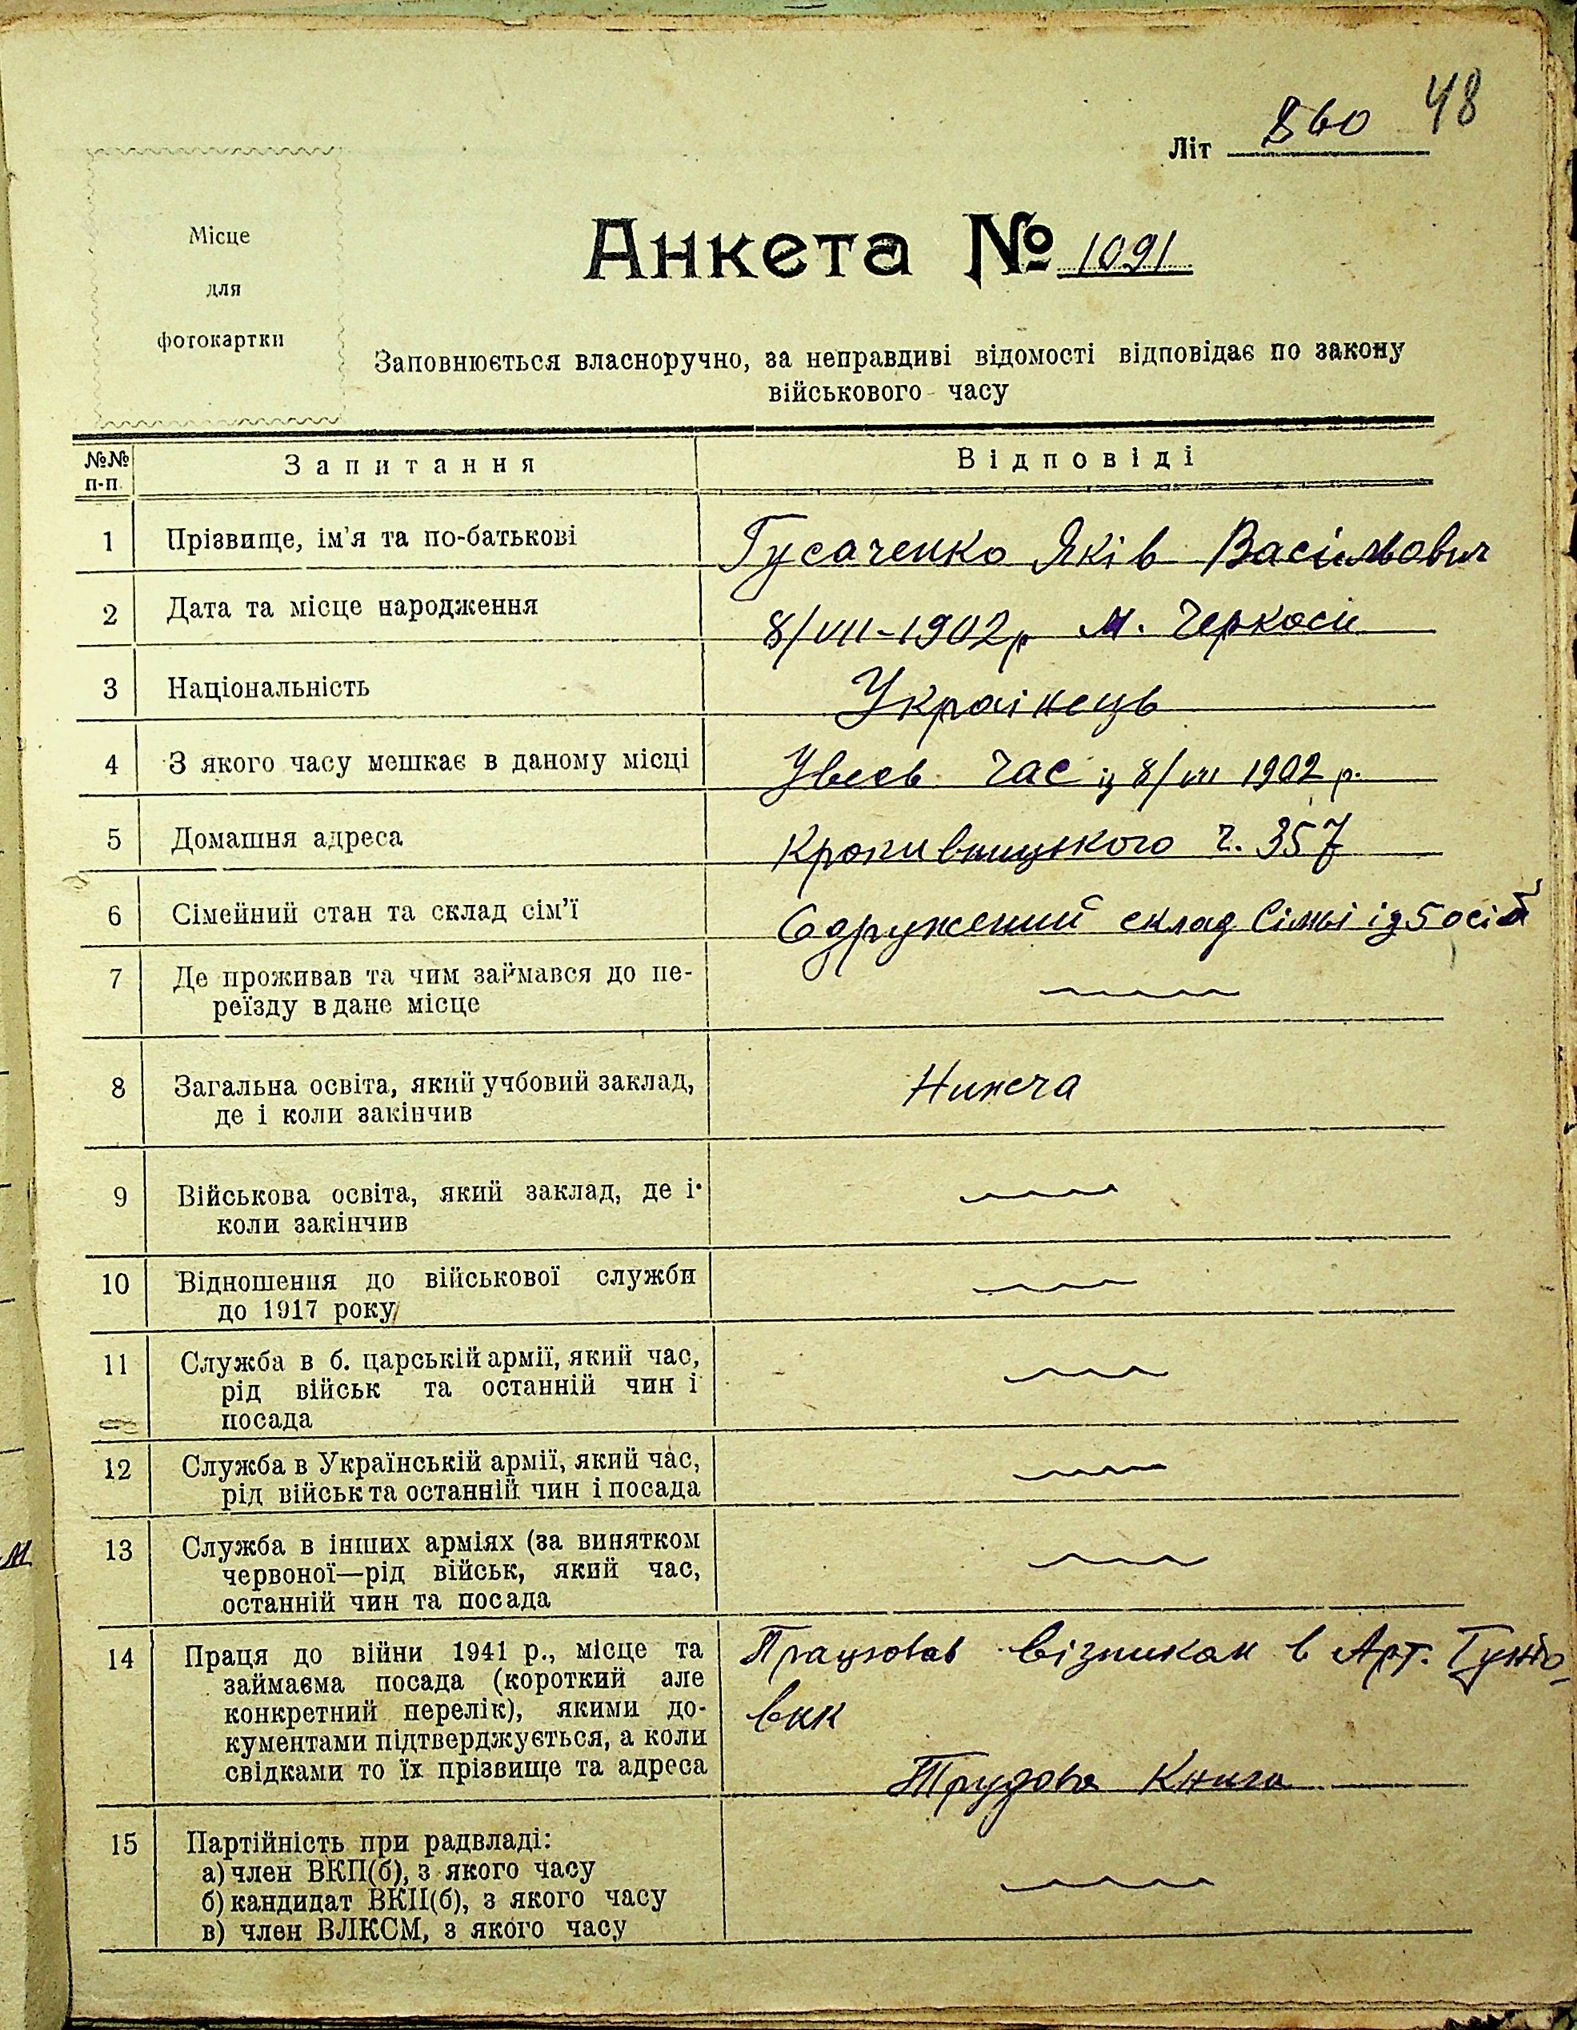 48
Літ 860
Місце
для
фотокартки
Анкета № 1091
Заповнюється власноручно, за неправдиві відомості відповідає по закону
військового часу
№№ п-п. Запитання Відповіді
1 Прізвище, ім'я та по-батькові Гусаченко Яків Васільович
2 Дата та місце народження 8/VII-1902 р м. Черкаси
3 Національність Украінець
4 З якого часу мешкає в даному місці Увесь час із 8/VII 1902 р.
5 Домашня адреса Кропивницького ч. 357
6 Сімейний стан та склад сім'ї Одружений склад сімьі із 5 осіб
7 Де проживав та чим займався до пе-
реїзду в дане місце
8 Загальна освіта, який учбовий заклад, Нижча
де і коли закінчив
9 Військова освіта, який заклад, де і
коли закінчив
10 Відношення до військової служби
до 1917 року
11 Служба в б. царській армії, який час,
рід військ та останній чин і
посада
12 Служба в Українській армії, який час,
рід військ та останній чин і посада
13 Служба в інших арміях (за винятком
червоної—рід військ, який час,
останній чин та посада
14 Праця до війни 1941 р., місце та Працював візником в Арт. Гужо-
займаєма посада (короткий але
конкретний перелік), якими до-
кументами підтверджується, а коли
свідками то їх прізвище та адреса Трудова Книга
15 Партійність при радвладі:
а) член ВКП(б), з якого часу
б) кандидат ВКП(б), з якого часу
в) член ВЛКСМ, з якого часу